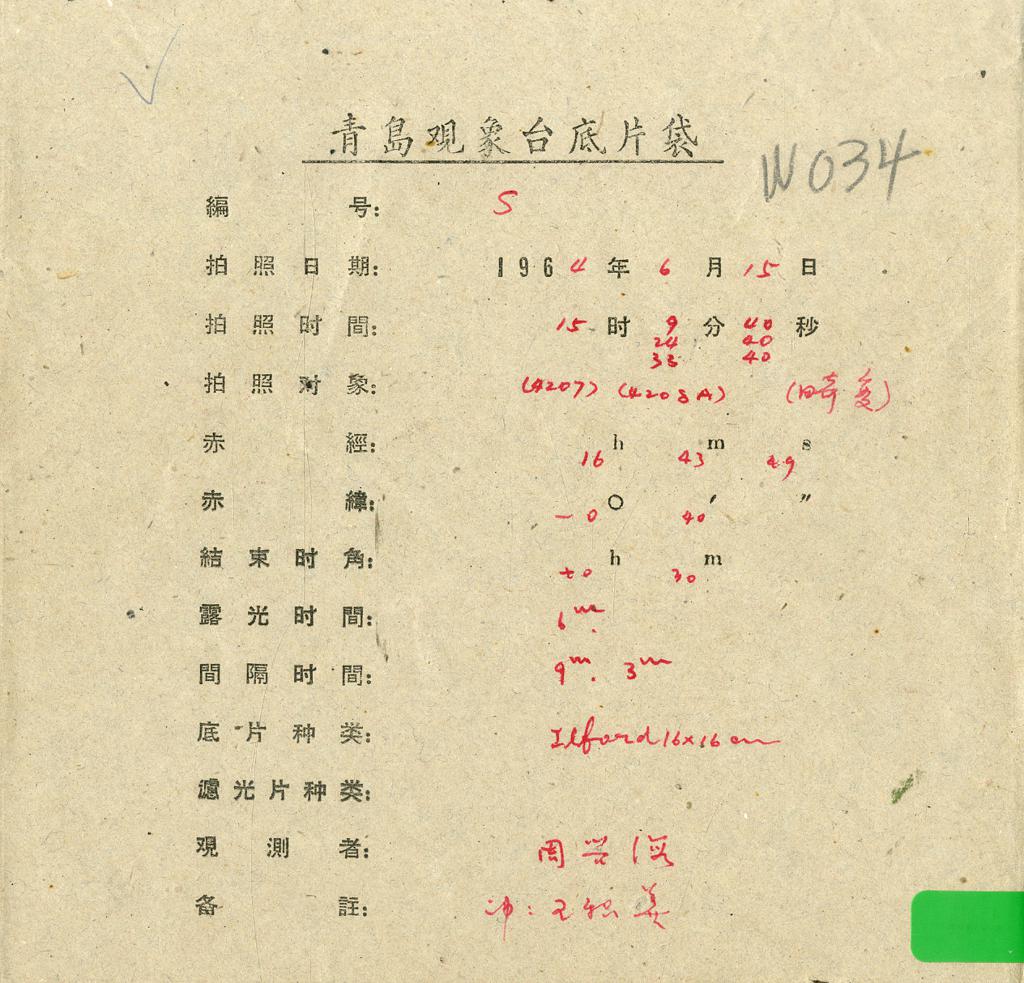 青島观象台底片袋
W034
編 号: S
拍照日期: 1964年6月15日
拍照时間: 15时9分40秒
24 40
33 40
拍照对象: (4207) (4208A)
赤 經: 16h 43m 49s
赤 緯: -0° 40′ ″
結束时角: +0h 30m
露光时間: 6m.
間隔时間: 9m. 3m
底片种类: Ilford 16×16cm
濾光片种类:
观測者: 周
备 註: 冲:王